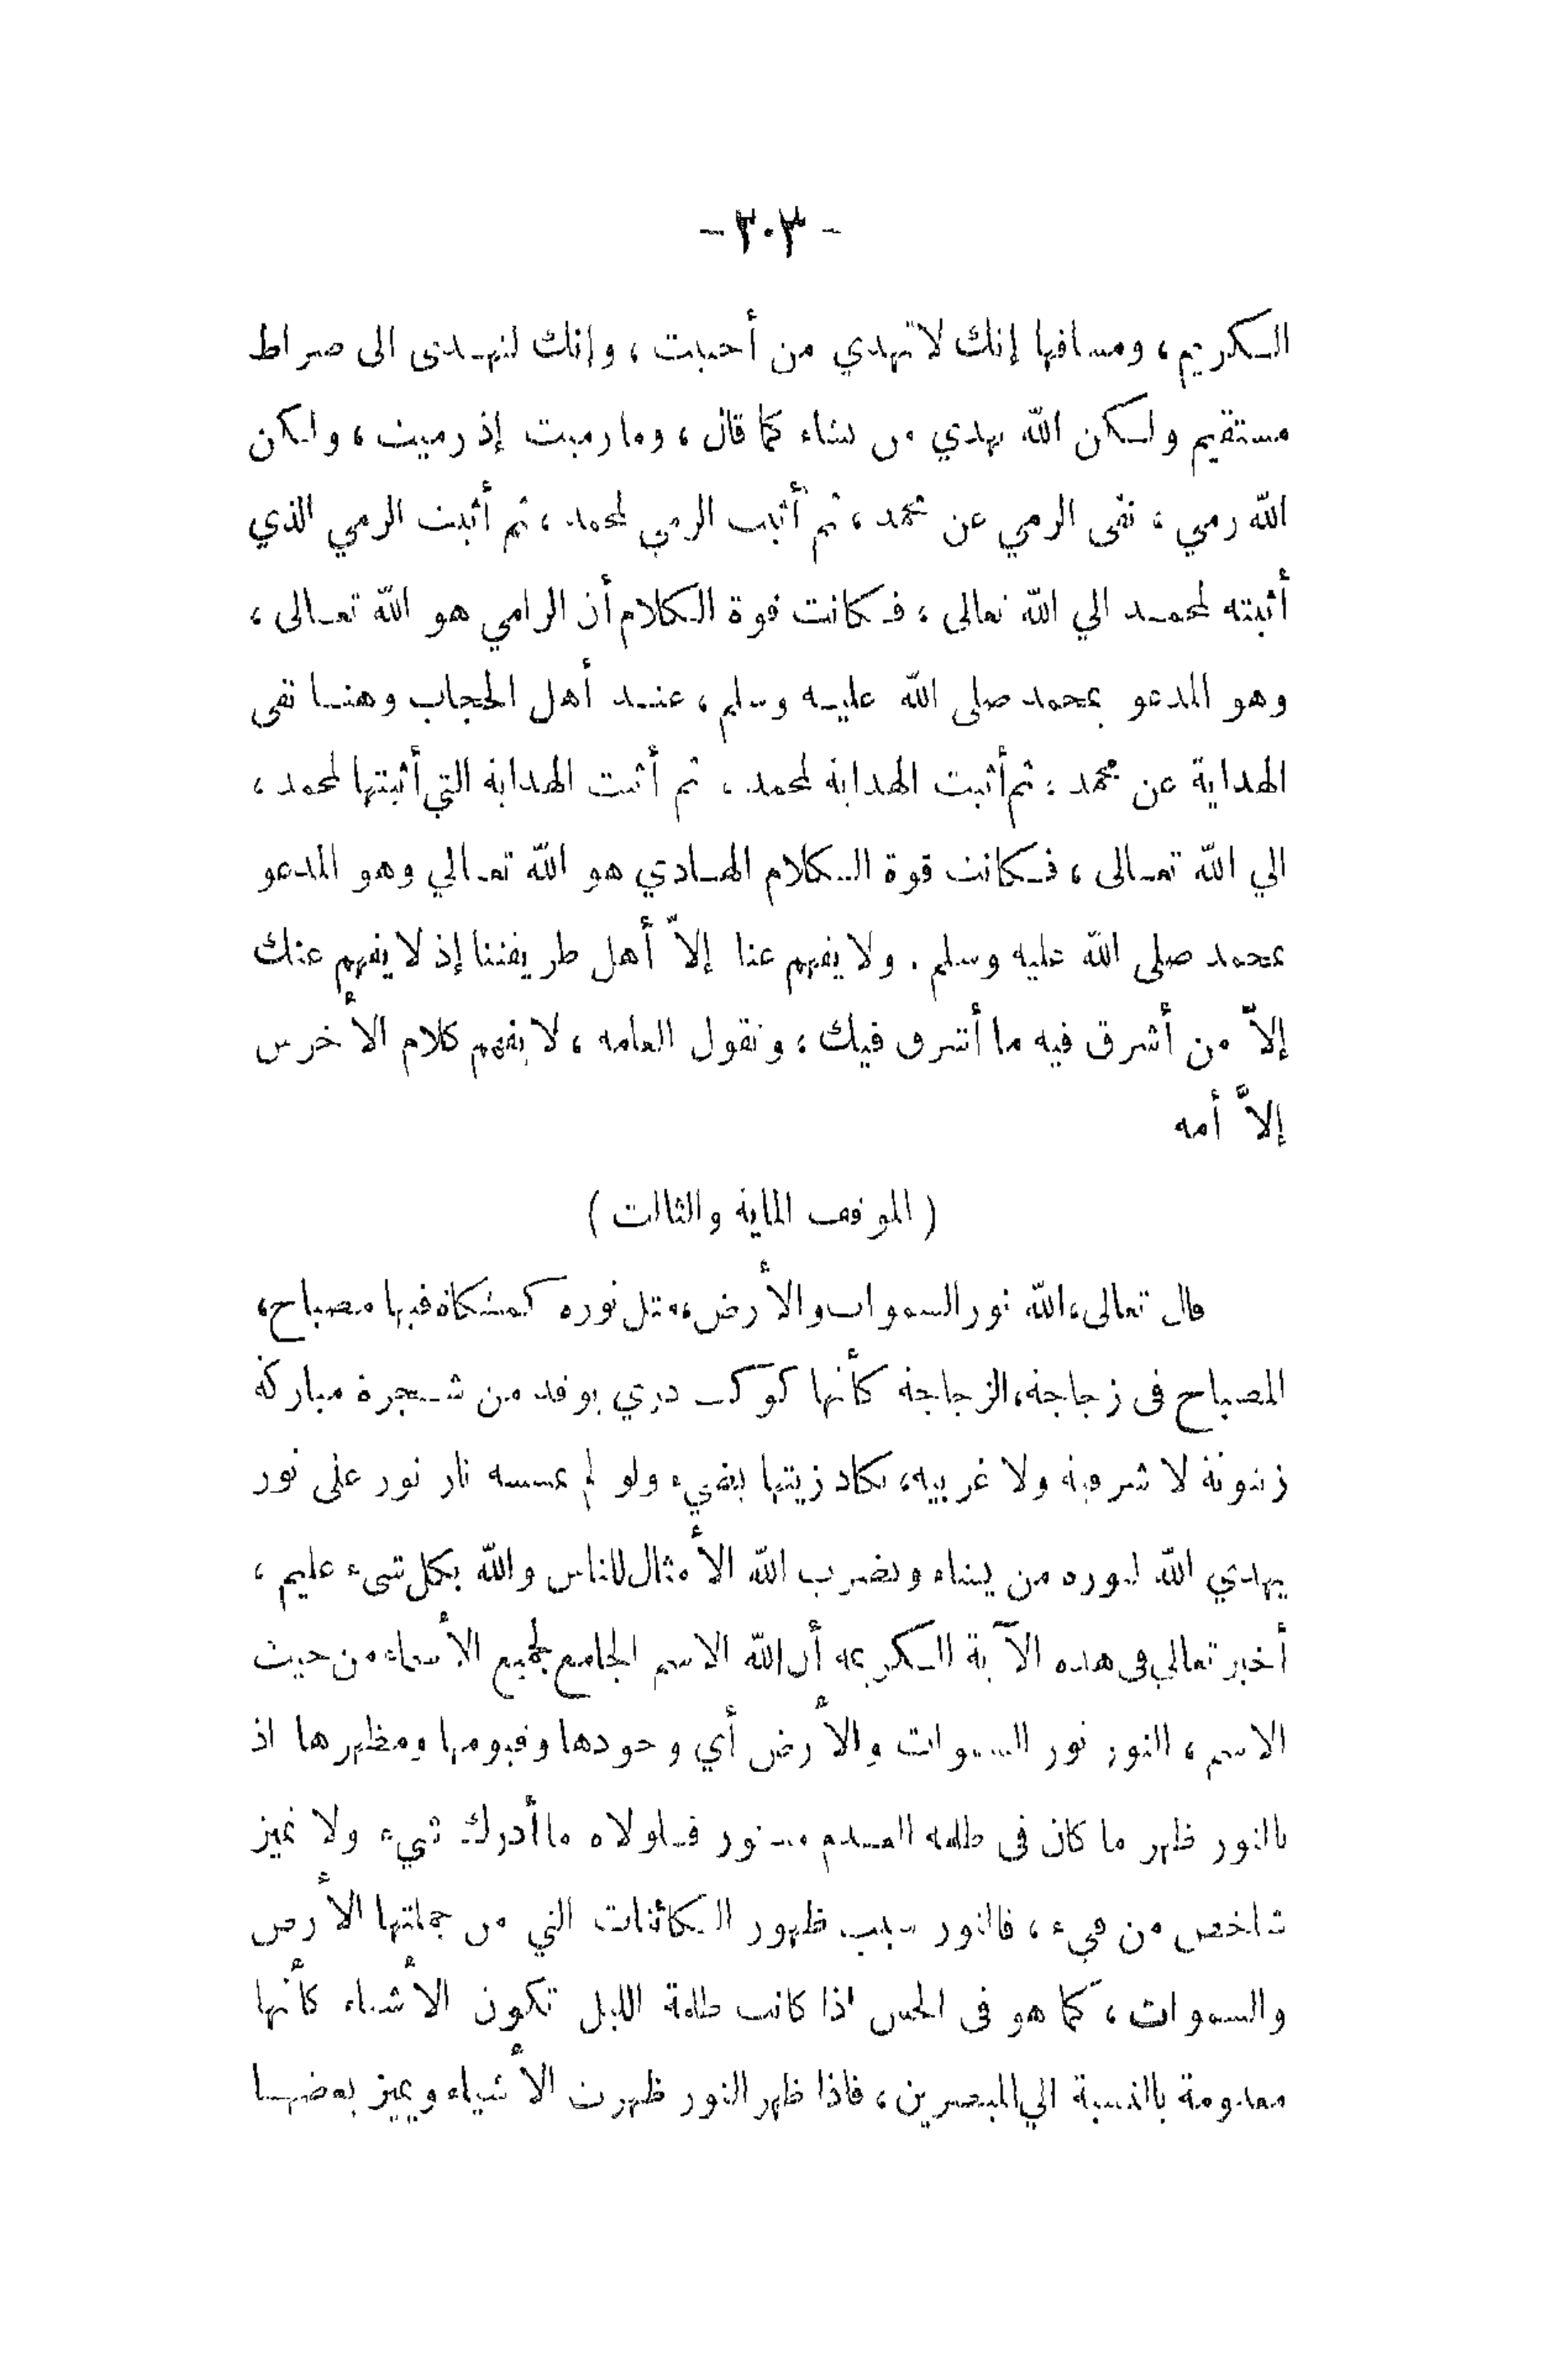 - ٢٠٣ -
الكريم، ومساقها إنك لا تهدي من أحببت، وإنك لتهدى الى صراط
مستقيم ولكن الله يهدي من يشاء كما قال، وما رميت إذ رميت، ولكن
الله رمي، نفى الرمي عن محمد، ثم أثبت الرمي لمحمد، ثم أثبت الرمي الذي
أثبته لمحمد الي الله تعالى، فكانت قوة الكلام أن الرامي هو الله تعالى،
وهو المدعو بمحمد صلى الله عليه وسلم، عند أهل الحجاب وهنا نفى
الهداية عن محمد، ثم أثبت الهداية لمحمد، ثم أثبت الهداية التي أثبتها لمحمد،
الي الله تعالى، فكانت قوة الكلام الهادي هو الله تعالي وهو المدعو
بمحمد صلى الله عليه وسلم. ولا يفهم عنا إلاّ أهل طريقتنا إذ لا يفهم عنك
إلاّ من أشرق فيه ما أشرق فيك، وتقول العامه، لا يفهم كلام الأخرس
إلاّ أمه
( الموقف الماية والثالث )
قال تعالى، الله نور السموات والأرض، مثل نوره كمشكاة فيها مصباح،
المصباح فى زجاجة، الزجاجة كأنها كوكب دري يوقد من شجرة مباركة
زيتونة لا شرقية ولا غربيه، يكاد زيتها يضيء ولو لم تمسسه نار نور على نور
يهدي الله لنوره من يشاء ويضرب الله الأمثال للناس والله بكل شىء عليم،
أخبر تعالي فى هذه الآية الكريمة أن الله الاسم الجامع لجميع الأسماء من حيث
الاسم، النور نور السموات والأرض أي وجودها وقيومها ومظهرها اذ
بالنور ظهر ما كان فى ظلمه العدم مستور فلولاه ما أدرك شيء ولا تميز
شاخص من فيء، فالنور سبب ظهور الكائنات التي من جملتها الأرض
والسموات، كما هو فى الحس اذا كانت ظلمة الليل تكون الأشياء كأنها
معدومة بالنسبة الي المبصرين، فاذا ظهر النور ظهرت الأشياء ويميز بعضها